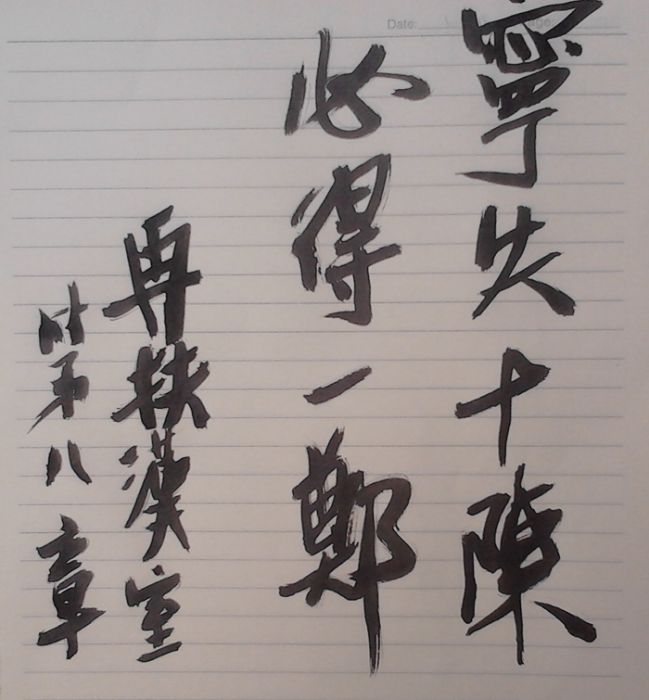 寧失十陳
必得一鄭
再扶漢室
第八章
Date: